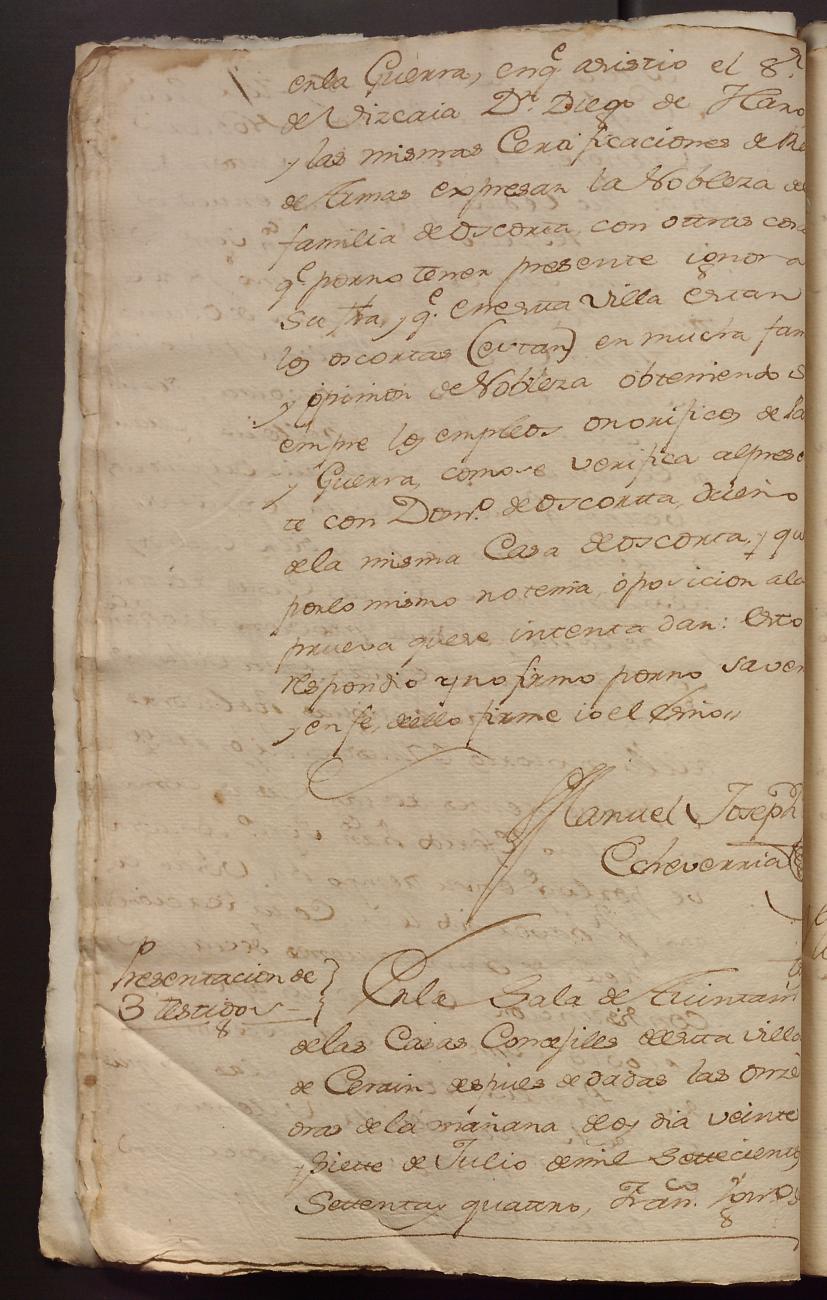 en la Guerra, en q.e asistio el S.r
de Vizcaia D.n Diego de Haro
y las mismas Certificaciones de Re
de Armas expresan la Nobleza de
familia de oscorta, con ottras cos
q.e por no tener presente ignora
su fha, y q.e en estta Villa estan
los oscortas (estan) en mucha fam
y opinion de Nobleza obteniendo s
empre los empleos onorificos de Pa
y Guerra, como se verifica al prese
te con Dom.o de oscortta, dueño
de la misma Casa de oscorta, y qu
por lo mismo no tenia, oposicion ala
prueva que se intenta dar: Esto
respondio y no firmo por no saver
y en fe, de ello firme io el Essno,,
Manuel Joseph
Echeverria
Presentacion de
3 testigos
En la Sala de Aiuntam
de las Casas Concejiles de estta villa
de Cerain despues de dadas las onze
oras de la mañana de oy dia veinte
y siette de Julio de mil settecientos
Settenta y quattro, Fran.co